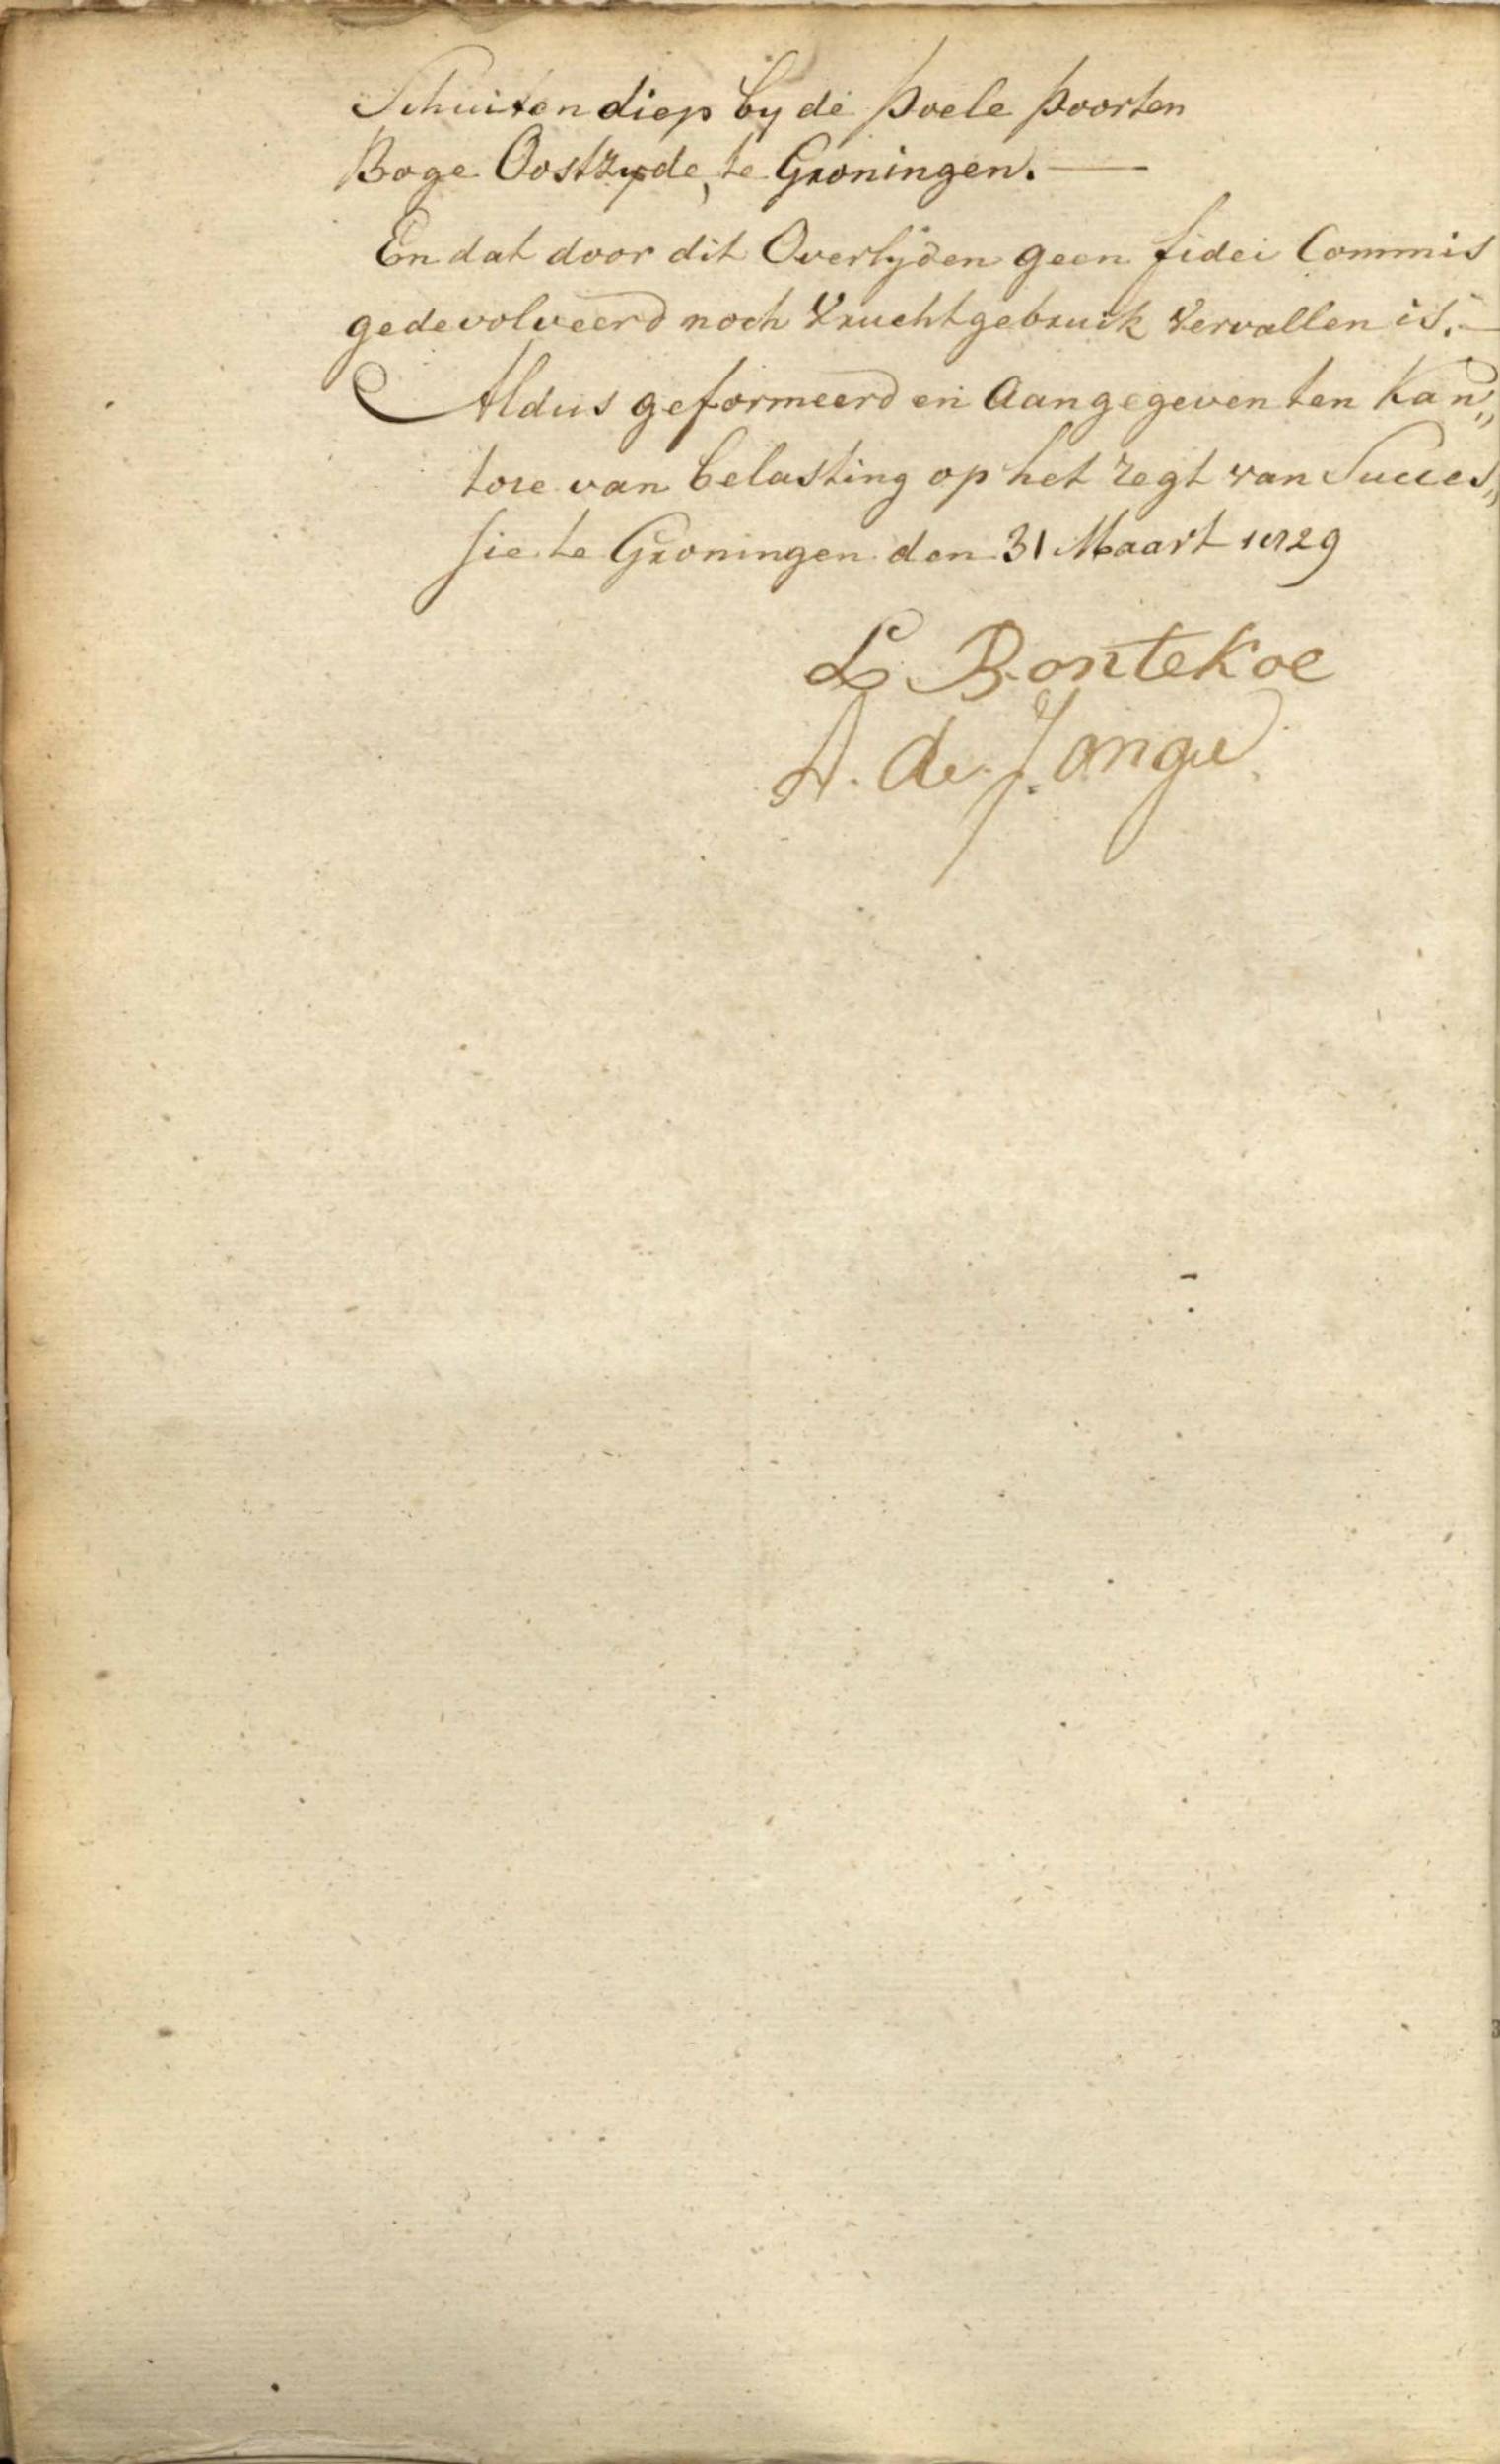 Schuiten diep by de Poele Poorten
Boge Oostzyde, te Groningen. —
En dat door dit Overlijden geen fidei Commis
gedevolveerd noch Vruchtgebruik Vervallen is. —
Aldus geformeerd en Aangegeven ten Kan„
tore van belasting op het regt van Succes„
sie te Groningen den 31 Maart 1829
L. Bontekoe
A. de Jonge